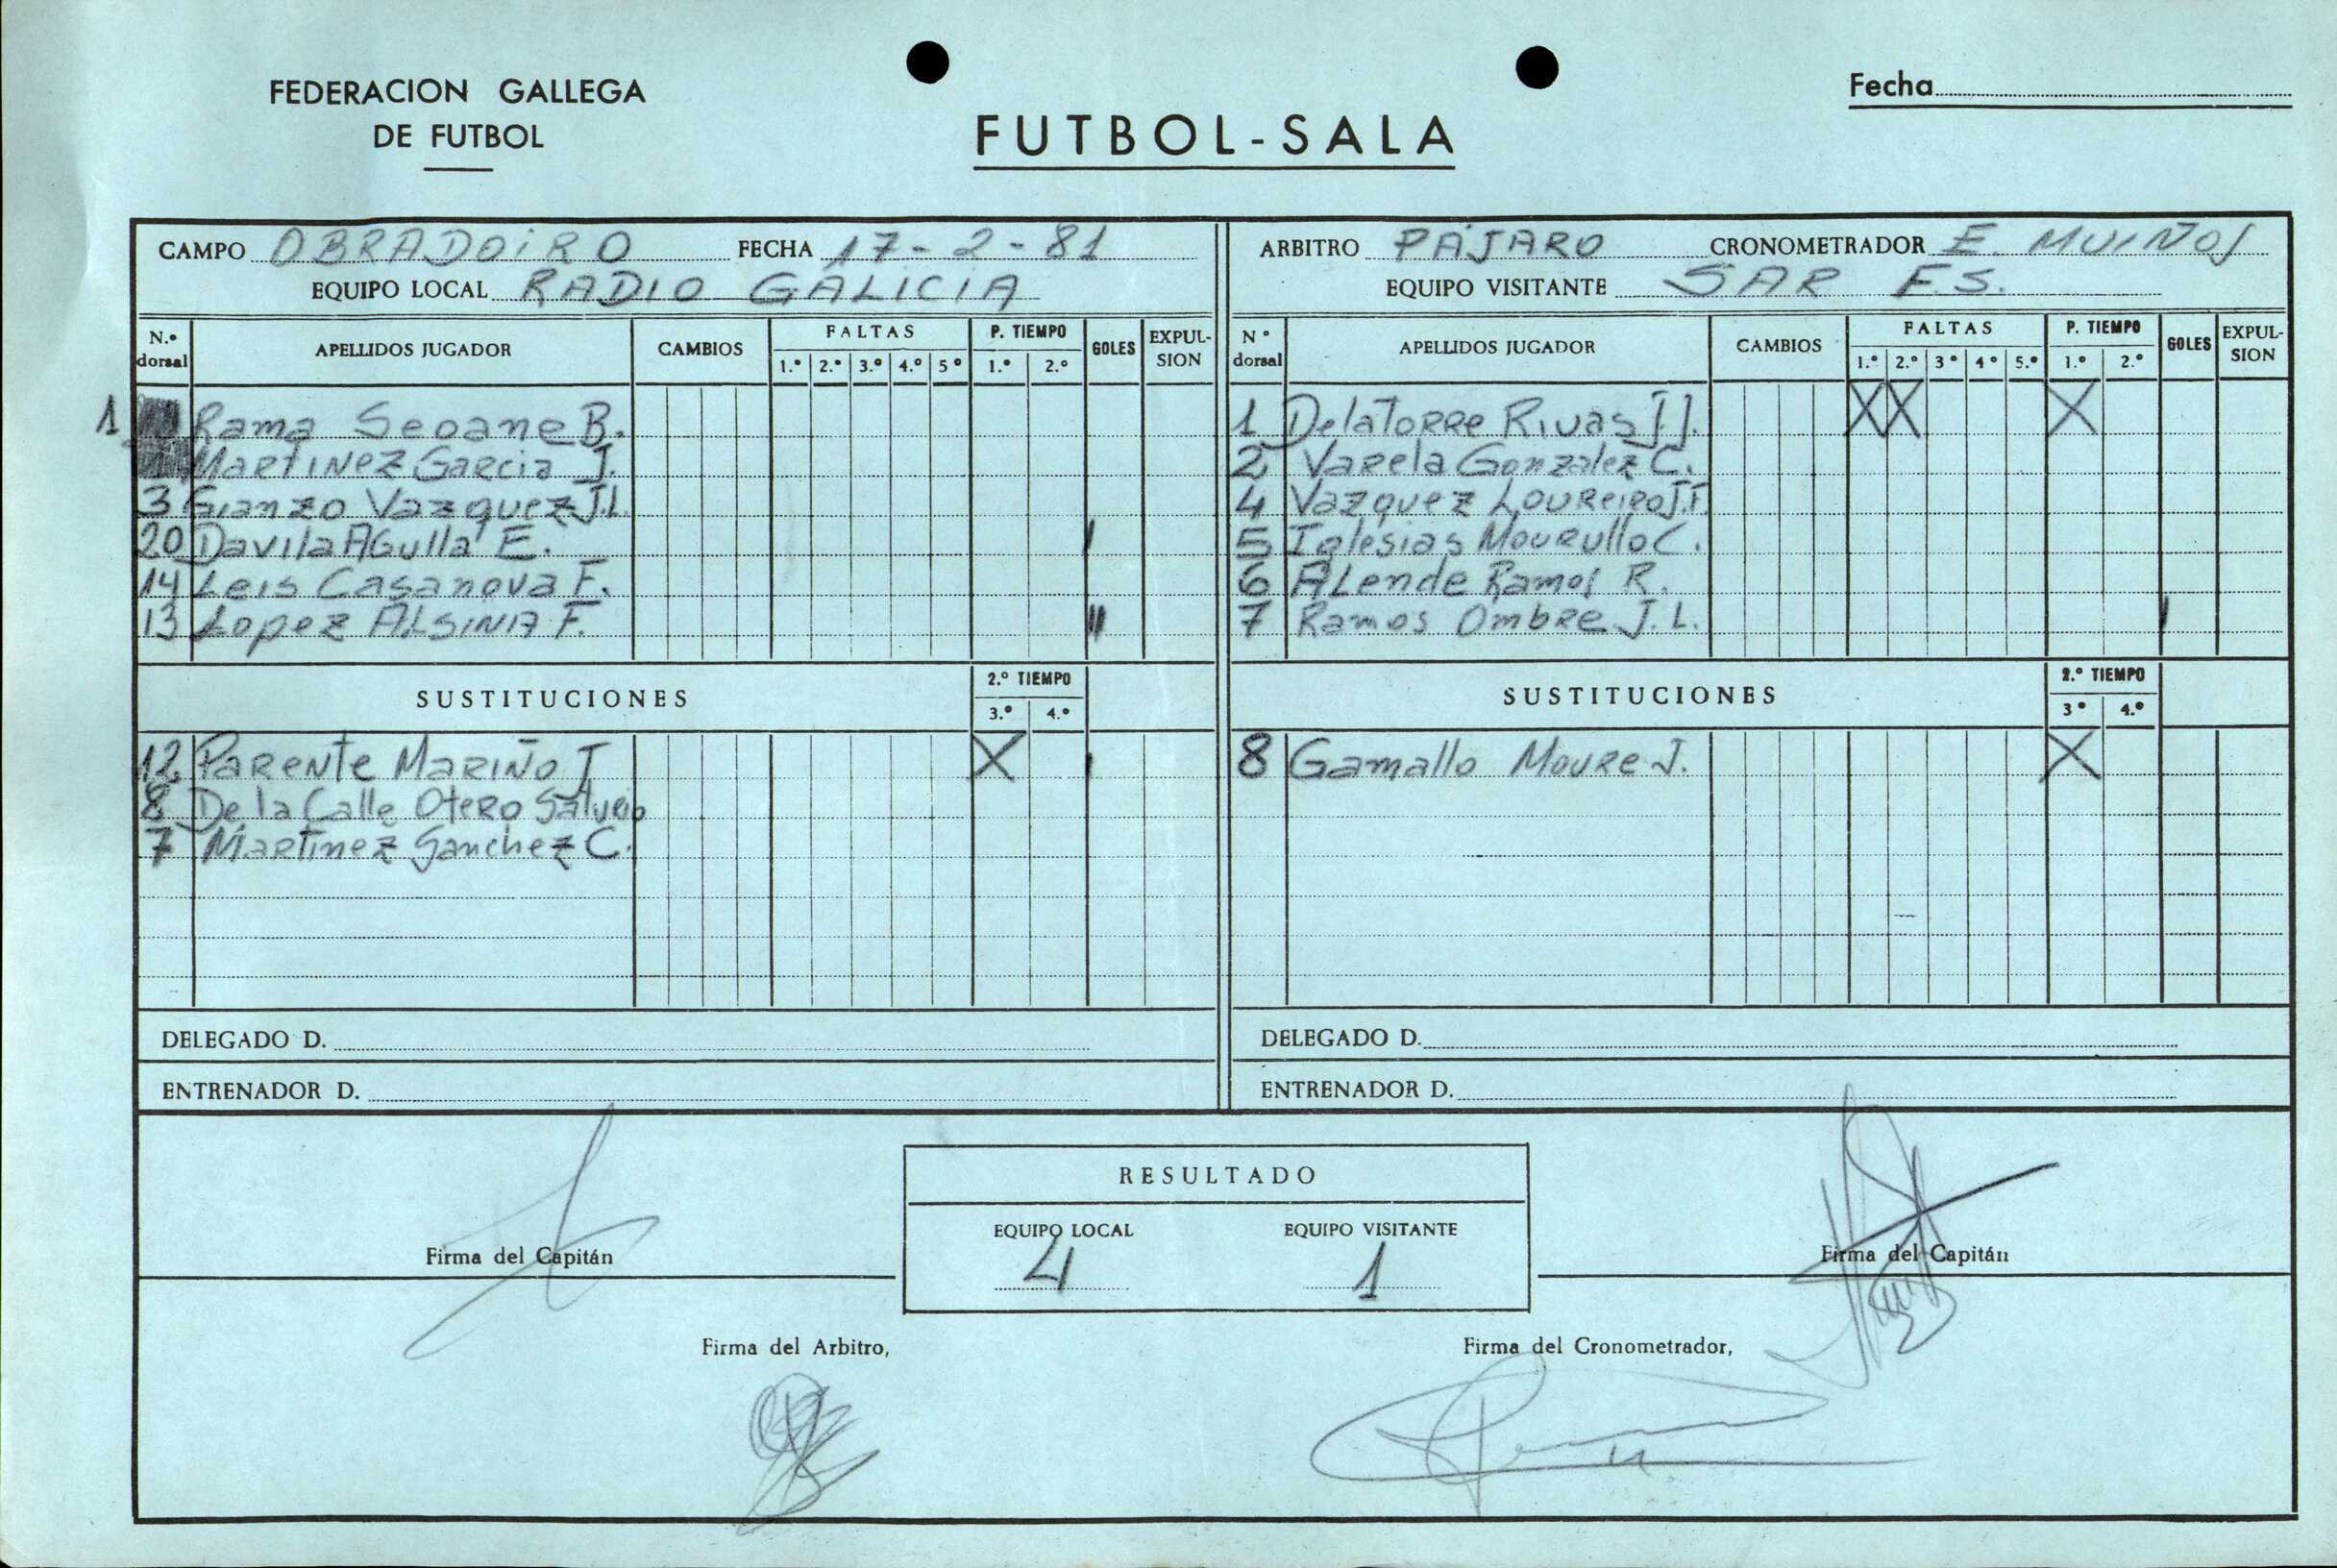 FEDERACION GALLEGA
DE FUTBOL
FUTBOL-SALA
Fecha
CAMPO OBRADOIRO FECHA 17-2-81
EQUIPO LOCAL RADIO GALICIA
ARBITRO PAJARO CRONOMETRADOR E. MUIÑOS
EQUIPO VISITANTE SAR F.S.
N.º dorsal APELLIDOS JUGADOR CAMBIOS FALTAS 1.º 2.º 3.º 4.º 5º P. TIEMPO 1.º 2.º GOLES EXPULSION
1 Rama Seoane B.
Martinez Garcia J.
3 Gianzo Vazquez J.L.
20 Davila Agulla E. I
14 Leis Casanova F.
13 Lopez ALSINA F. II
SUSTITUCIONES 2.º TIEMPO 3.º 4.º
12 Parente Mariño J X I
8 De la Calle Otero
7 Martinez Sanchez C.
DELEGADO D.
ENTRENADOR D.
N º dorsal APELLIDOS JUGADOR CAMBIOS FALTAS 1.º 2.º 3º 4º 5.º P. TIEMPO 1.º 2.º GOLES EXPULSION
1 DelaTorre Rivas J.J. X X X
2 Varela Gonzalez C.
4 Vazquez Loureiro J.F.
5 Iglesias Mourullo C.
6 ALende Ramos R.
7 Ramos Ombre J.L. I
SUSTITUCIONES 2.º TIEMPO 3º 4.º
8 Gamallo Moure J. X
DELEGADO D.
ENTRENADOR D.
RESULTADO
EQUIPO LOCAL EQUIPO VISITANTE
4 1
Firma del Capitán
Firma del Capitán
Firma del Arbitro,
Firma del Cronometrador,